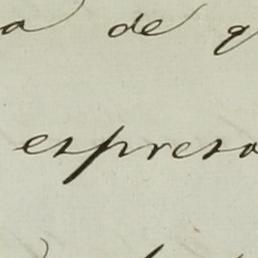 a de q
espreso